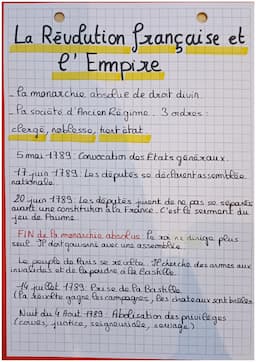 La Révolution française et
l'Empire
_ la monarchie absolue de droit divin.
_ la société d'Ancien Régime : 3 ordres :
clergé, noblesse, tiers état
5 mai 1789: Convocation des Etats généraux.
17 juin 1789: Les députés se déclarent assemblée
nationale.
20 juin 1789: Les députés jurent de ne pas se séparer
avant une constitution à la France. C'est le serment du
jeu de Paume.
FIN de la monarchie absolue. Le roi ne dirige plus
seul. Il doit gouverner avec une assemblée.
Le peuple de Paris se révolte. Il cherche des armes aux
invalides et de la poudre à la Bastille.
14 juillet 1789: Prise de la Bastille
(la révolte gagne les campagnes, les chateaux sont brûlés
Nuit du 4 Août 1789: Abolisation des privilèges
(corvées, justice, seigneuriale, servage)